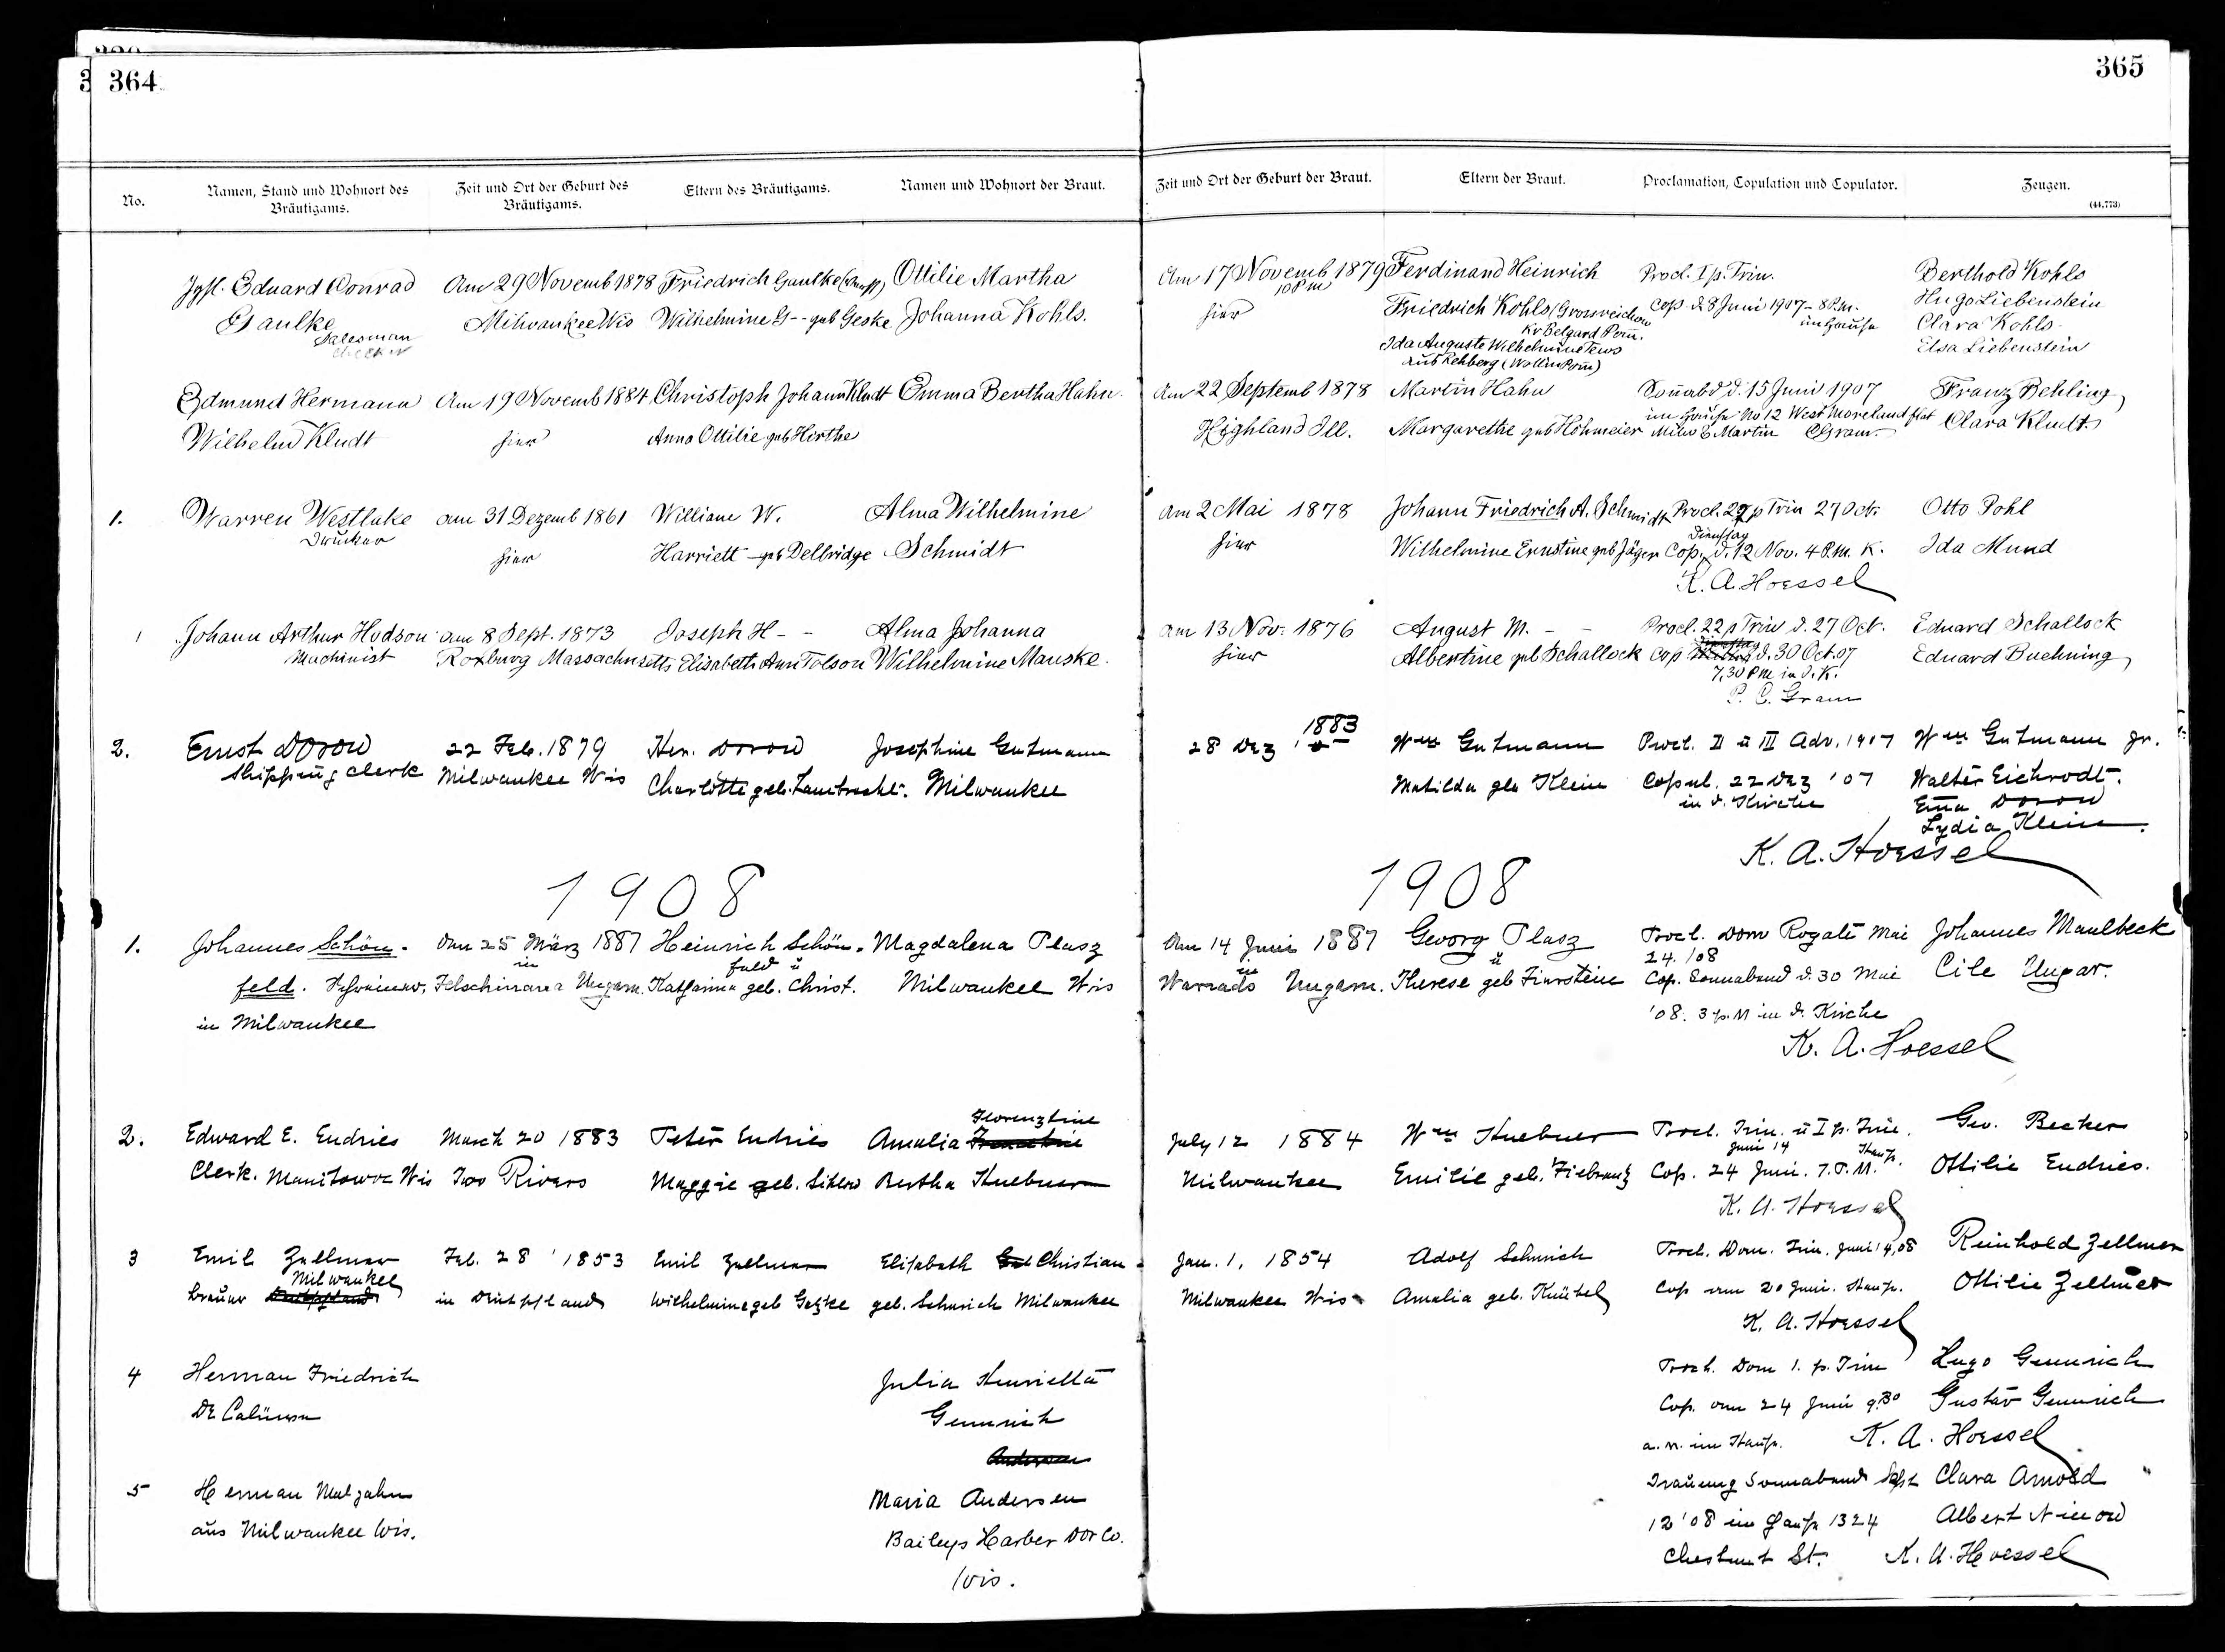 364
365
No.
Namen, Stand und Wohnort des Bräutigams.
Zeit und Ort der Geburt des Bräutigams.
Eltern des Bräutigams.
Namen und Wohnort der Braut.
Zeit und Ort der Geburt der Braut.
Eltern der Braut.
Proclamation, Copulation und Copulator.
Zeugen.
(44,773)
Jgsl. Eduard Conrad
Gaulke
Salesman
Am 29 Novemb 1878
Milwaukee Wis
Friedrich Gaulke
Wilhelmine G-- geb Geske
Ottilie Martha
Johanna Kohls.
Am 17 Novemb 1879
10 Pm
hier
Ferdinand Heinrich
Friedrich Kohls (Grossreichow
Kr Belgard Pom.
Ida Auguste Wilhelmine Tews
aus Rehberg (Wollin Pom)
Procl. I p. Trin.
Cop. d. 8 Juni 1907 - 8 P.m.
im Hause
Berthold Kohls
Hugo Liebenstein
Clara Kohls
Elsa Liebenstein
Edmund Hermann
Wilhelm Kludt
Am 19 Novemb 1884
hier
Christoph Johann Kludt
Anna Ottilie geb Hirthe
Emma Bertha Hahn.
Am 22 Septemb 1878
Highland Ill.
Martin Hahn
Margarethe geb Höhmeier
Sonabd d. 15 Juni 1907
im Hause No 12 West Moreland flat
Milw & Martin CGram.
Franz Behling
Clara Kludt
1.
Warren Westlake
Drucker
am 31 Dezemb 1861
hier
William W.
Harriett - geb Dellridge
Alma Wilhelmine
Schmidt
am 2 Mai 1878
hier
Johann Friedrich A. Schmidt
Wilhelmine Ernstine geb Jäger
Procl. 22 p Trin 27 Oct.
Dienstag
Cop. d. 12 Nov. 4 P.m. K.
K. A. Hoessel
Otto Pohl
Ida Mund
1
Johann Arthur Hudson
Machinist
am 8 Sept. 1873
Roxburg Massachusetts
Joseph H - -
Elisabeth Ann Tolson
Alma Johanna
Wilhelmine Manske.
am 13 Nov. 1876
hier
August M. - -
Albertine geb Schallock
Procl. 22 p Trin d. 27 Oct.
Cop d. 30 Oct. 07
7,30 Pm in d. K.
P. C. Gram
Eduard Schallock
Eduard Buehning
2.
Ernst Dorow
Shipping clerk
22 Feb. 1879
Milwaukee Wis
Her. Dorow
Charlotte geb. Lambrecht.
Josephine Gutmann
Milwaukee
28 Dez 1883
Wm Gutmann
Matilda geb Klein
Procl. II u III Adv. 1907
Copul. 22 Dez '07
in d. Kirche
Wm Gutmann jr.
Walter Eichrodt.
Ema Dorow
Lydia Klein.
K. A. Hoessel
1908
1908
1.
Johannes Schön-
feld. Schreiner,
in Milwaukee
Am 25 März 1887
in
Ungarn.
Heinrich Schön-
feld u
Katharina geb. Christ.
Magdalena Plasz
Milwaukee Wis
Am 14 Juni 1887
in
Ungarn.
Georg Plasz
u
Therese geb
Procl. Dom Rogate Mai
24. '08
Cop. Sonnabend d. 30 Mai
'08. 3 p. M in d. Kirche
K. A. Hoessel
Johannes Maulbeck
Cile Ungar.
2.
Edward E. Endries
Clerk. Manitowoc Wis
March 20 1883
Two Rivers
Peter Endries
Maggie geb.
Amalia Florenztine
Bertha Huebner
July 12 1884
Milwaukee
Wm Huebner
Emilie geb. Fiebranz
Procl. Trin. u I p. Trin.
Juni 14
Cop. 24 Juni. 7. P. M. Hause.
K. A. Hoessel
Geo. Becker
Ottilie Endries.
3
Emil Zellmer
Milwaukee
Brauer
Feb. 28 1853
in Deutschland
Emil Zellmer
Wilhelmine geb Getzke
Elisabeth Christian
geb. Schurich Milwaukee
Jan. 1. 1854
Milwaukee Wis
Adolf Schurich
Amalia geb. Knütel
Procl. Dom. Trin. Juni 14, 08
Cop am 20 Juni. Hause.
K. A. Hoessel
Reinhold Zellmer
Ottilie Zellmer
4
Herman Friedrich
Julia Henrietta
Gennrich
Procl. Dom 1. p. Trin
Cop. am 24 Juni 9.30
a. m. im Hause.
K. A. Hoessel
Hugo Gennrich
Gustav Gennrich
5
Herman Malzahn
aus Milwaukee Wis.
Maria Andersen
Baileys Harber Dor Co.
Wis.
Trauung Sonnabend Sept
12 '08 im Hause 1324
Chestnut St.
Clara Arnold
Albert Nimow
K. A. Hoessel